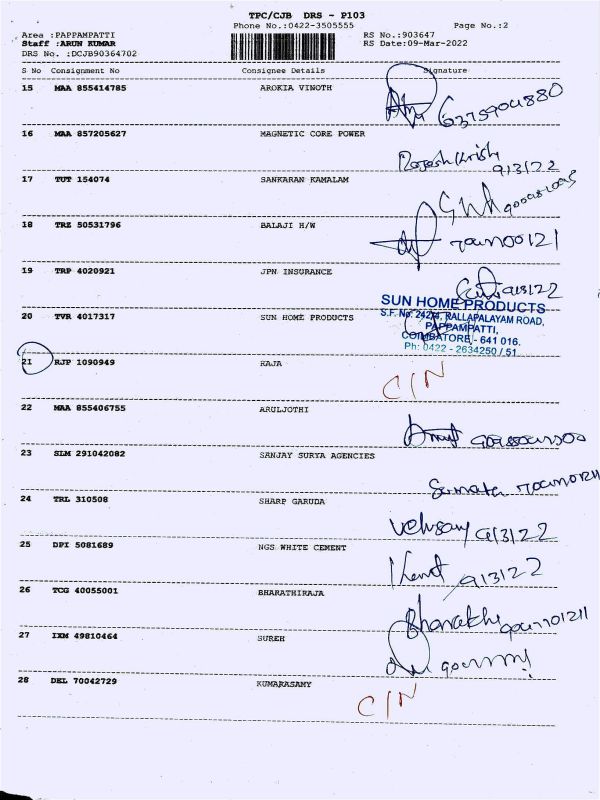 TPC/CJB DRS - P103
Phone No.:0422-3505555 Page No.:2
Area :PAPPAMPATTI RS No.:903647
Staff :ARUN KUMAR RS Date:09-Mar-2022
DRS No. :DCJB90364702
S No Consignment No Consignee Details Signature
15 MAA 855414785 AROKIA VINOTH
16 MAA 857205627 MAGNETIC CORE POWER
9/3/22
17 TUT 154074 SANKARAN KAMALAM
18 TRZ 50531796 BALAJI H/W
19 TRP 4020921 JPN INSURANCE
9/3/22
20 TVR 4017317 SUN HOME PRODUCTS
SUN HOME PRODUCTS
RALLAPALAYAM ROAD,
PAPPAMPATTI,
COIMBATORE - 641 016.
Ph: 0422 - 2634250 / 51
21 RJP 1090949 KAJA
C/N
22 MAA 855406755 ARULJOTHI
23 SLM 291042082 SANJAY SURYA AGENCIES
24 TRL 310508 SHARP GARUDA
9/3/22
25 DPI 5081689 NGS WHITE CEMENT
9/3/22
26 TCG 40055001 BHARATHIRAJA
27 IXM 49810464 SUREH
28 DEL 70042729 KUMARASAMY
C/N